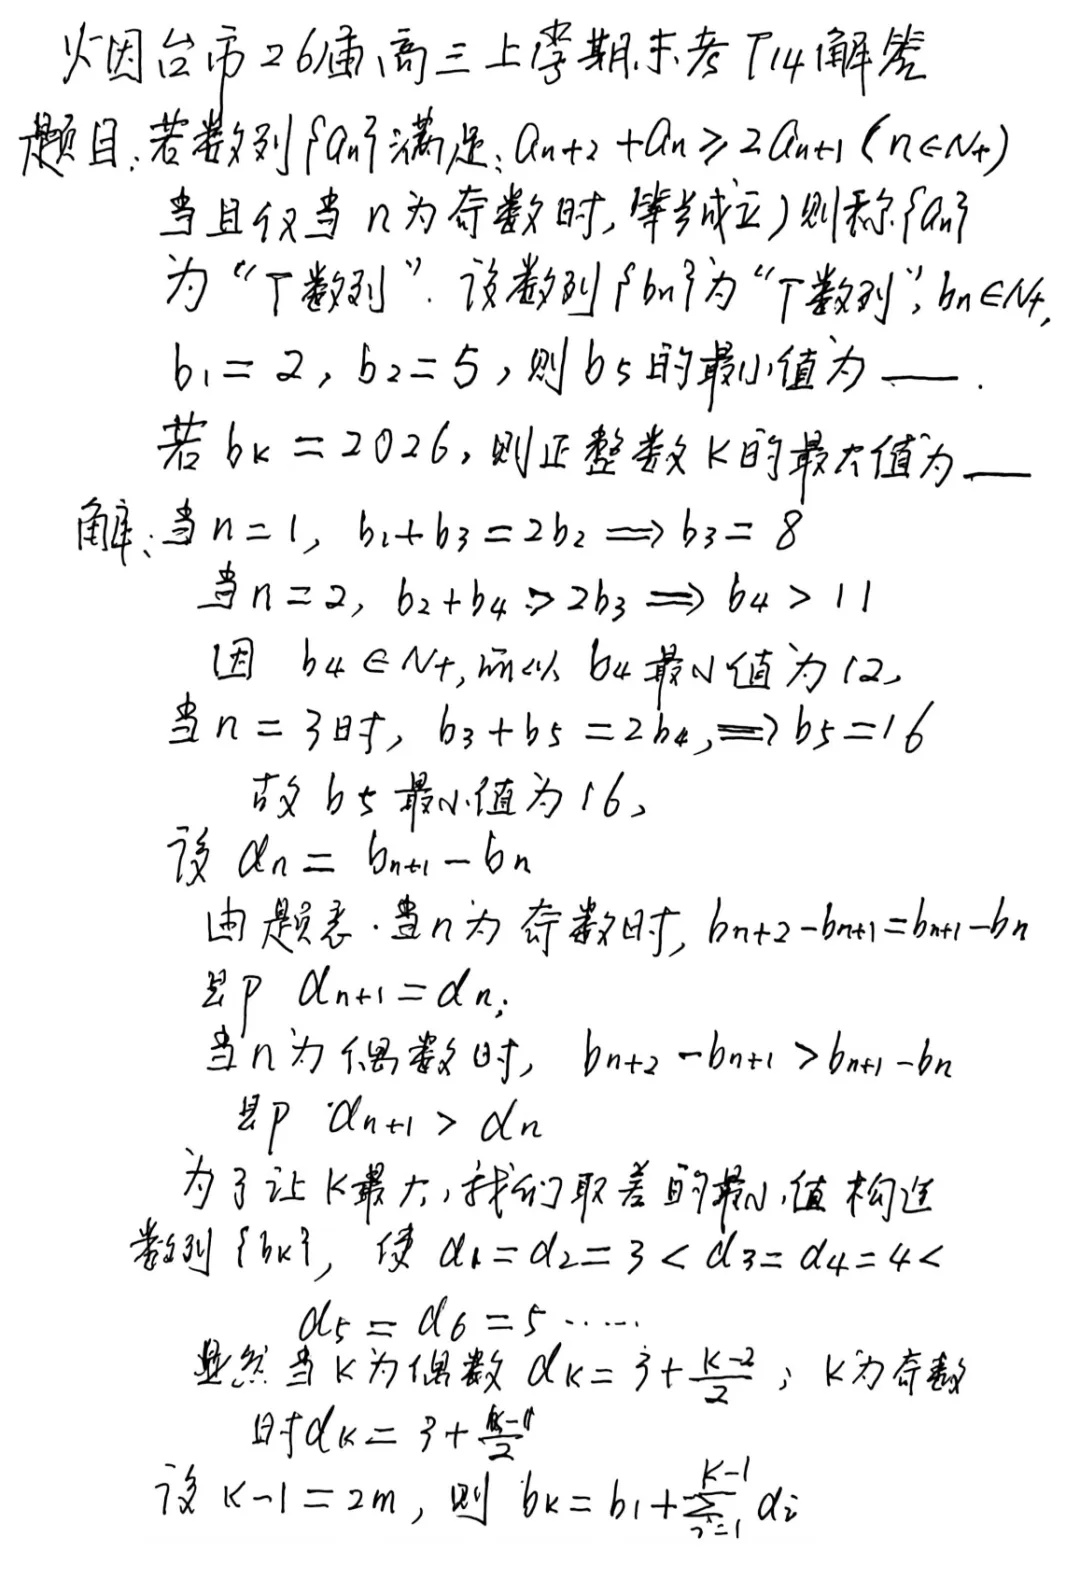 烟台市26届高三上学期末考T14解答
题目:若数列{an}满足:an+2+an≥2an+1(n∈N+)
当且仅当n为奇数时,等号成立)则称{an}
为“T数列”.设数列{bn}为“T数列”,bn∈N+,
b1=2,b2=5,则b5的最小值为——.
若bk=2026,则正整数K的最大值为——
解:当n=1,b1+b3=2b2⇒b3=8
当n=2,b2+b4>2b3⇒b4>11
因b4∈N+,所以b4最小值为12,
当n=3时,b3+b5=2b4,⇒b5=16
故b5最小值为16,
设dn=bn+1-bn
由题意.当n为奇数时,bn+2-bn+1=bn+1-bn
即dn+1=dn;
当n为偶数时,bn+2-bn+1>bn+1-bn
即dn+1>dn
为了让K最大,我们取差的最小值构造
数列{bk},使d1=d2=3<d3=d4=4<
d5=d6=5……
显然当K为偶数dK=3+(K-2)/2;K为奇数
时dK=3+(K-1)/2
设K-1=2m,则bK=b1+∑_{i=1}^{K-1}di